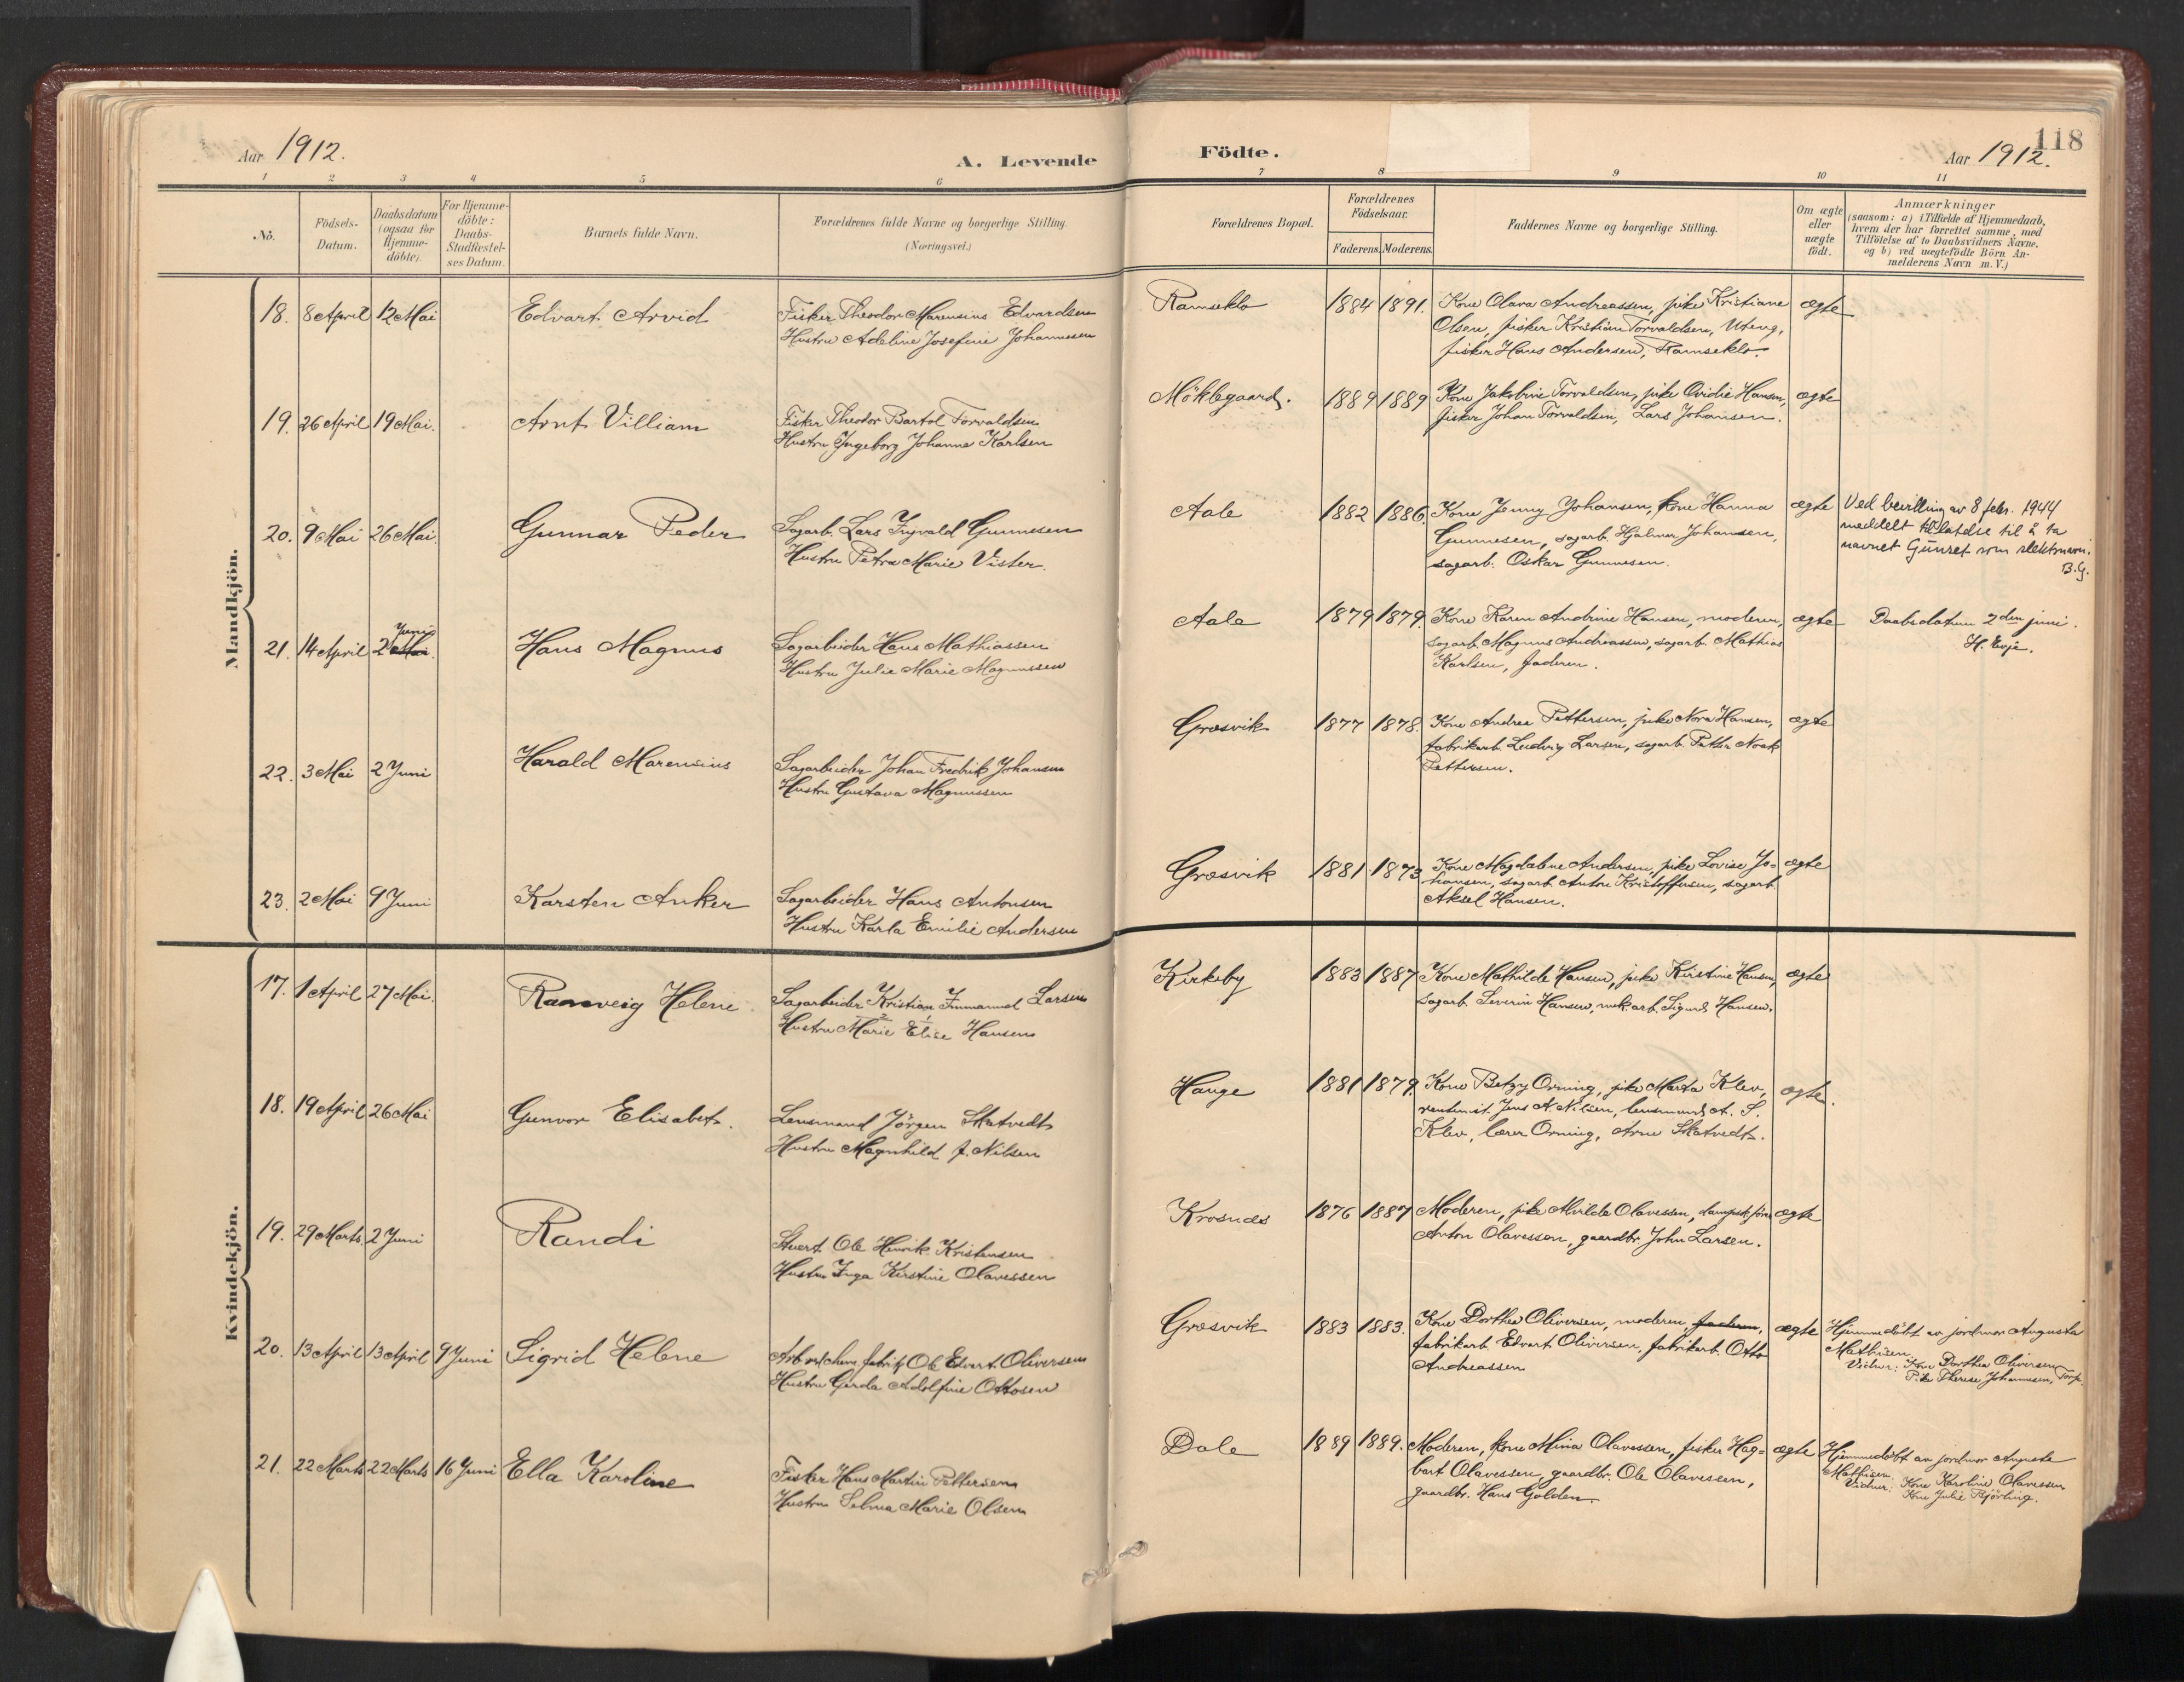 118
Aar 1912.
A. Levende Födte.
Aar 1912.
1 2 3 4 5 6 7 8 9 10 11
No.
Födsels-
Datum.
Daabsdatum
(ogsaa for
Hjemme-
döbte).
For Hjemme-
döbte:
Daabs-
Stadfæstel-
ses Datum.
Barnets fulde Navn.
Forældrenes fulde Navne og borgerlige Stilling.
(Næringsvei.)
Forældrenes Bopæl.
Forældrenes
Födselsaar.
Faderens. Moderens.
Faddernes Navne og borgerlige Stilling.
Om ægte
eller
uægte
födt.
Anmærkninger
(saasom: a) i Tilfælde af Hjemmedaab,
hvem der har forrettet samme, med
Tilföielse af to Daabsvidners Navne,
og b) ved uægtefödte Börn An-
melderens Navn m. V.)
Mandkjön.
18. 8 April 12 Mai Edvart Arvid
Fisker Theodor Marensius Edvardsen
Hustru Adeline Josefine Johannesen
Ramseklo 1884 1891.
Kone Olava Andreassen, pike Kristiane
Olsen, fisker Kristian Torvaldsen, Uteng,
fisker Hans Andersen, Ramseklo.
ægte
19. 26 April 19 Mai. Arnt Villiam
Fisker Theodor Bartol Torvaldsen
Hustru Ingeborg Johanne Karlsen
Möklegaard. 1889 1889
Kone Jakobine Torvaldsen, pike Ovidie Hansen,
fisker Johan Torvaldsen, Lars Johansen.
ægte
20. 9 Mai 26 Mai. Gunnar Peder
Sagarb. Lars Trygvald Gunnesen
Hustru Petra Marie Vister.
Aale 1882 1886.
Kone Jenny Johansen, kone Hanna
Gunnesen, sagarb. Hjalmar Johansen,
sagarb. Oskar Gunnesen.
ægte
Ved bevilling av 8 febr. 1944
meddelt tillatelse til å ta
navnet Gunset som slektsnavn.
B.G.
21. 14 April 2 Juni Mai. Hans Magnus
Sagarbeider Hans Mathiassen
Hustru Julie Marie Magnussen
Aale 1879 1879.
Kone Karen Andrine Hansen, moderen,
sagarb. Magnus Andreassen, sagarb. Mathias
Karlsen, faderen.
ægte
Daabsdatum 2den juni.
H. Evje.
22. 3 Mai 2 Juni Harald Marensius
Sagarbeider Johan Fredrik Johansen
Hustru Gustava Magnussen
Græsvik 1877 1878.
Kone Andrea Pettersen, pike Nora Hansen,
fabrikarb. Ludvig Larsen, sagarb. Petter Noak
Pettersen.
ægte
23. 2 Mai 9 Juni Karsten Anker
Sagarbeider Hans Antonsen
Hustru Karla Emilie Andersen
Græsvik 1881 1873
Kone Magdalene Andersen, pike Lovise Jo-
hansen, sagarb. Anton Kristoffersen, sagarb.
Aksel Hansen.
ægte
Kvindekjön.
17. 1 April 27 Mai. Ranveig Helene
Sagarbeider Kristian Immanuel Larsen
2 1
Hustru Marie Elise Hansen
Kirkeby 1883 1887
Kone Mathilde Hansen, pike Kristine Hansen,
sagarb. Severin Hansen, mek. arb. Sigurd Hansen.
ægte
18. 19 April 26 Mai Gunvor Elisabet.
Lensmand Jörgen Skatvedt
Hustru Magnhild f. Nilsen
Hauge 1881 1879.
Kone Betzy Orning, pike Marta Klev,
rentenist Jens A. Nilsen, lensmand A. S.
Klev, lærer Orning, Arne Skatvedt.
ægte.
19. 29 Marts. 2 Juni Randi
Stuert Ole Henrik Kristensen
Hustru Inga Kirstine Olavessen
Krosnæs 1876 1887
Moderen, pike Alvilde Olavessen, dampsk.förer
Anton Olavessen, gaardbr. John Larsen.
ægte
20. 13 April 13 April 9 Juni Sigrid Helene
Arb. ved chem. fabrik Ole Edvart Oliversen
Hustru Gerda Adolfine Ottosen
Græsvik 1883 1883.
Kone Dorthea Oliversen, moderen, faderen,
fabrikarb. Edvart Oliversen, fabrikarb. Otto
Andreassen
ægte
Hjemmedöbt av jordmor Augusta
Mathisen.
Vidner: Kone Dorthea Oliversen
Pike Therese Johannesen, Torp.
21. 22 Marts 22 Marts 16 Juni Ella Karoline
Fisker Hans Martin Pettersen
Hustru Selma Marie Olsen
Dale 1889 1889.
Moderen, kone Mina Olavessen, fisker Hag-
bart Olavessen, gaardbr. Ole Olavessen,
gaardbr. Hans Golden.
ægte
Hjemmedöbt av jordmor Augusta
Mathisen.
Vidner: Kone Karoline Olavessen
Kone Julie Björling.